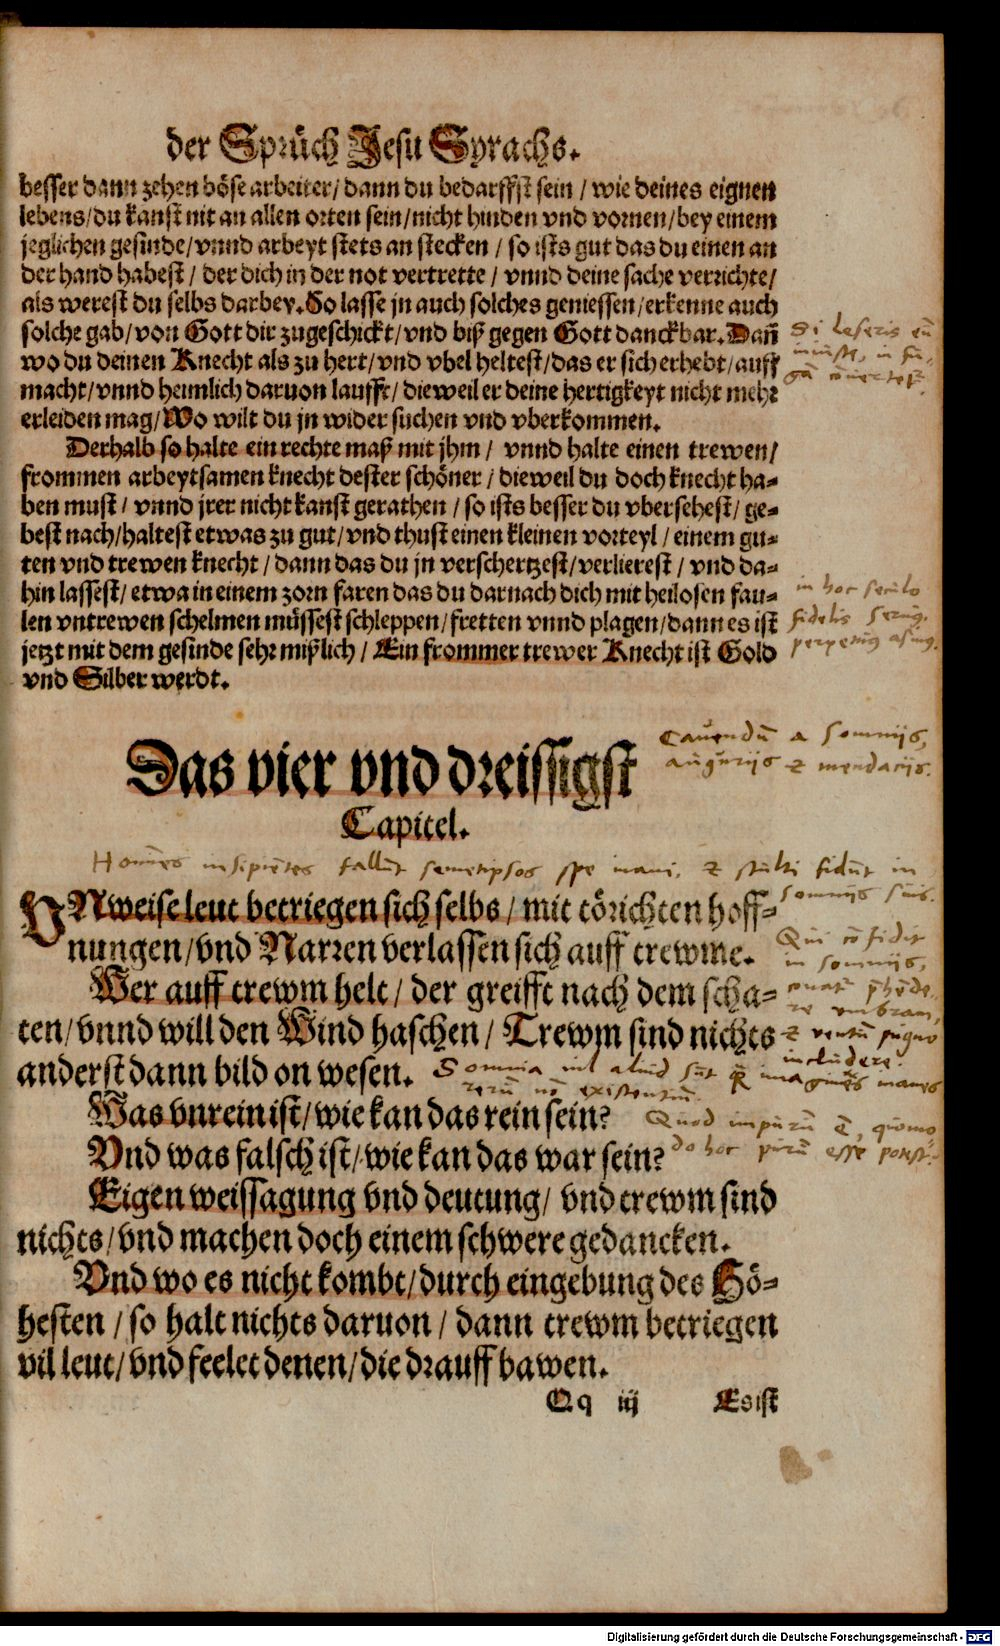 der Sprüch Jesu Syrachs.
besser dann zehen böse arbeiter/ dann du bedarffst sein / wie deines eignen
lebens/du kanst nit an allen orten sein/nicht hinden vnd vornen/bey einem
jeglichen gesinde/vnnd arbeyt stets an stecken / so ists gut das du einen an
der hand habest / der dich in der not vertrette / vnnd deine sache verrichte/
als werest du selbs darbey. So lasse jn auch solches geniessen/erkenne auch
solche gab/von Gott dir zugeschickt/vnd biß gegen Gott danckbar. Dañ
wo du deinen Knecht als zu hert/vnd vbel heltest/das er sich erhebt/auff
macht/vnnd heimlich daruon laufft/ dieweil er deine hertigkeyt nicht mehr
erleiden mag/Wo wilt du jn wider suchen vnd vberkommen.
Si leseris eū
iniuste, in fu-
gā cōuertet.
Derhalb so halte ein rechte maß mit jhm / vnnd halte einen trewen/
frommen arbeytsamen knecht dester schöner / dieweil du doch knecht ha-
ben must / vnnd jrer nicht kanst gerathen / so ists besser du vbersehest/ ge-
best nach/haltest etwas zu gut/vnd thust einen kleinen vorteyl / einem gu-
ten vnd trewen knecht / dann das du jn verschertzest/verlierest / vnd da-
hin lassest/ etwa in einem zorn faren das du darnach dich mit heilosen fau-
len vntrewen schelmen müssest schleppen/fretten vnnd plagen/dann es ist
jetzt mit dem gesinde sehr mißlich / Ein frommer trewer Knecht ist Gold
vnd Silber werdt.
in hoc seculo
fidelis seruus
perpetuus asinus.
Das vier vnd dreissigst
Capitel.
Cauendū a somniis,
auguriis & mendaciis.
Homīes insipiētes fallūt semetipsos spe inani, & stulti fidūt in
somniis suis.
VNweise leut betriegen sich selbs / mit törichten hoff-
nungen/vnd Narren verlassen sich auff trewme.
Wer auff trewm helt / der greifft nach dem scha-
ten/vnnd will den Wind haschen / Trewm sind nichts
anderst dann bild on wesen.
Qui cōfidit
in somniis,
conatur
umbram,
& ventū pugno
includere.
Somnia nil aliud sūt imagines inanes
rerū nō existentiū.
Was vnrein ist/wie kan das rein sein?
Vnd was falsch ist/wie kan das war sein?
Quod impurū ē, quomo-
do hoc purū esse potest?
Eigen weissagung vnd deutung/ vnd trewm sind
nichts/vnd machen doch einem schwere gedancken.
Vnd wo es nicht kombt/durch eingebung des Hö-
hesten / so halt nichts daruon / dann trewm betriegen
vil leut/vnd feelet denen/die drauff bawen.
Qq iij Es ist
Digitalisierung gefördert durch die Deutsche Forschungsgemeinschaft - DFG